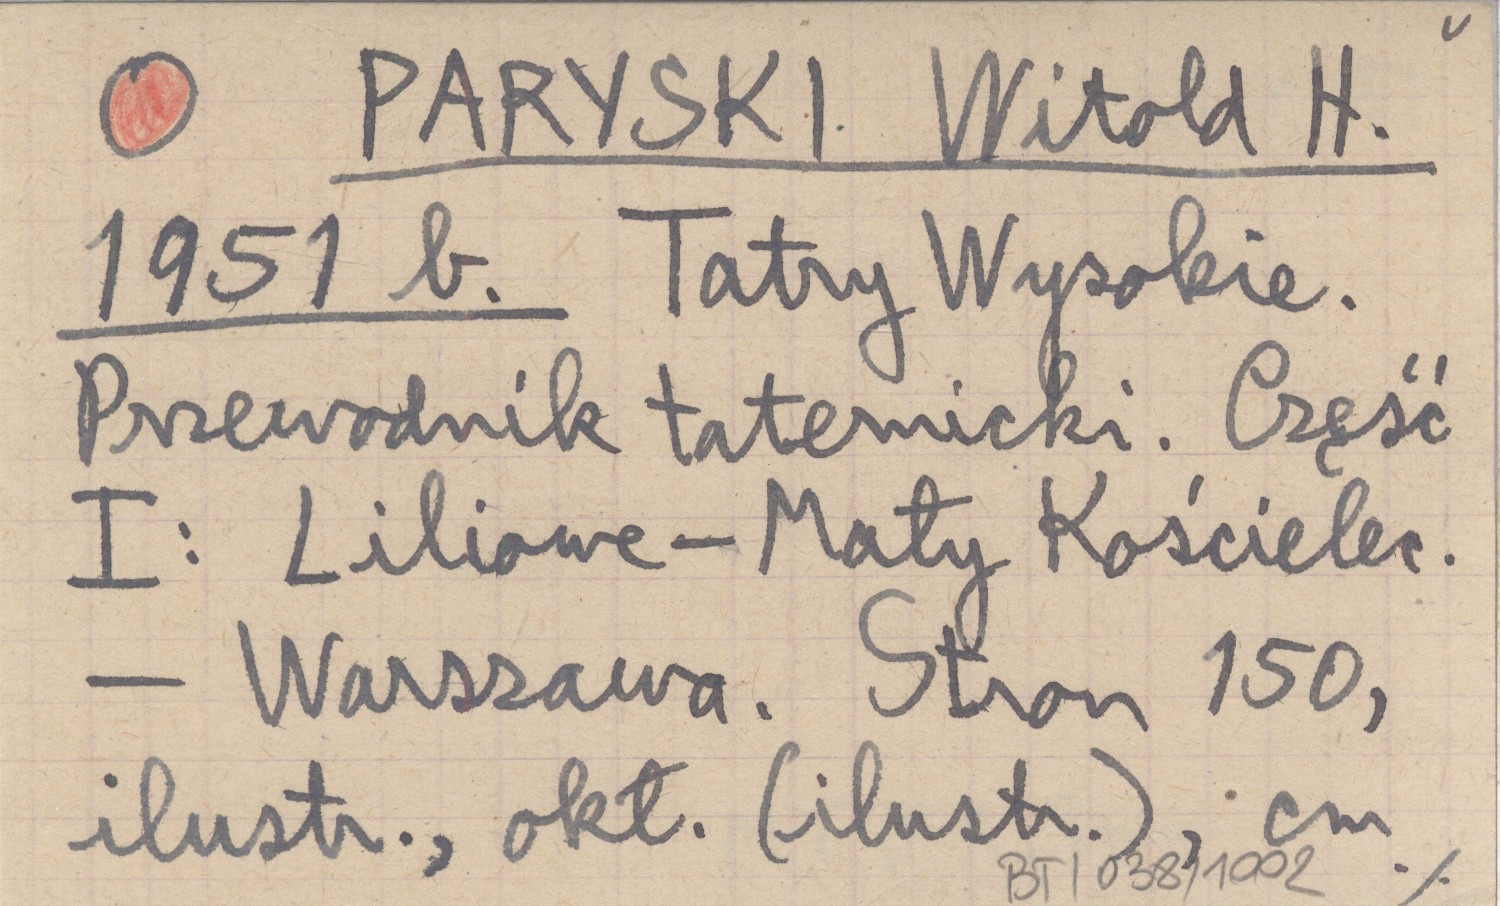 PARYSKI Witold H.
1951 b. Tatry Wysokie.
Przewodnik taternicki. Część
I: Liliowe – Mały Kościelec.
– Warszawa. Stron 150,
ilustr., okł. (ilustr.), cm
BT/038/1002 ./.